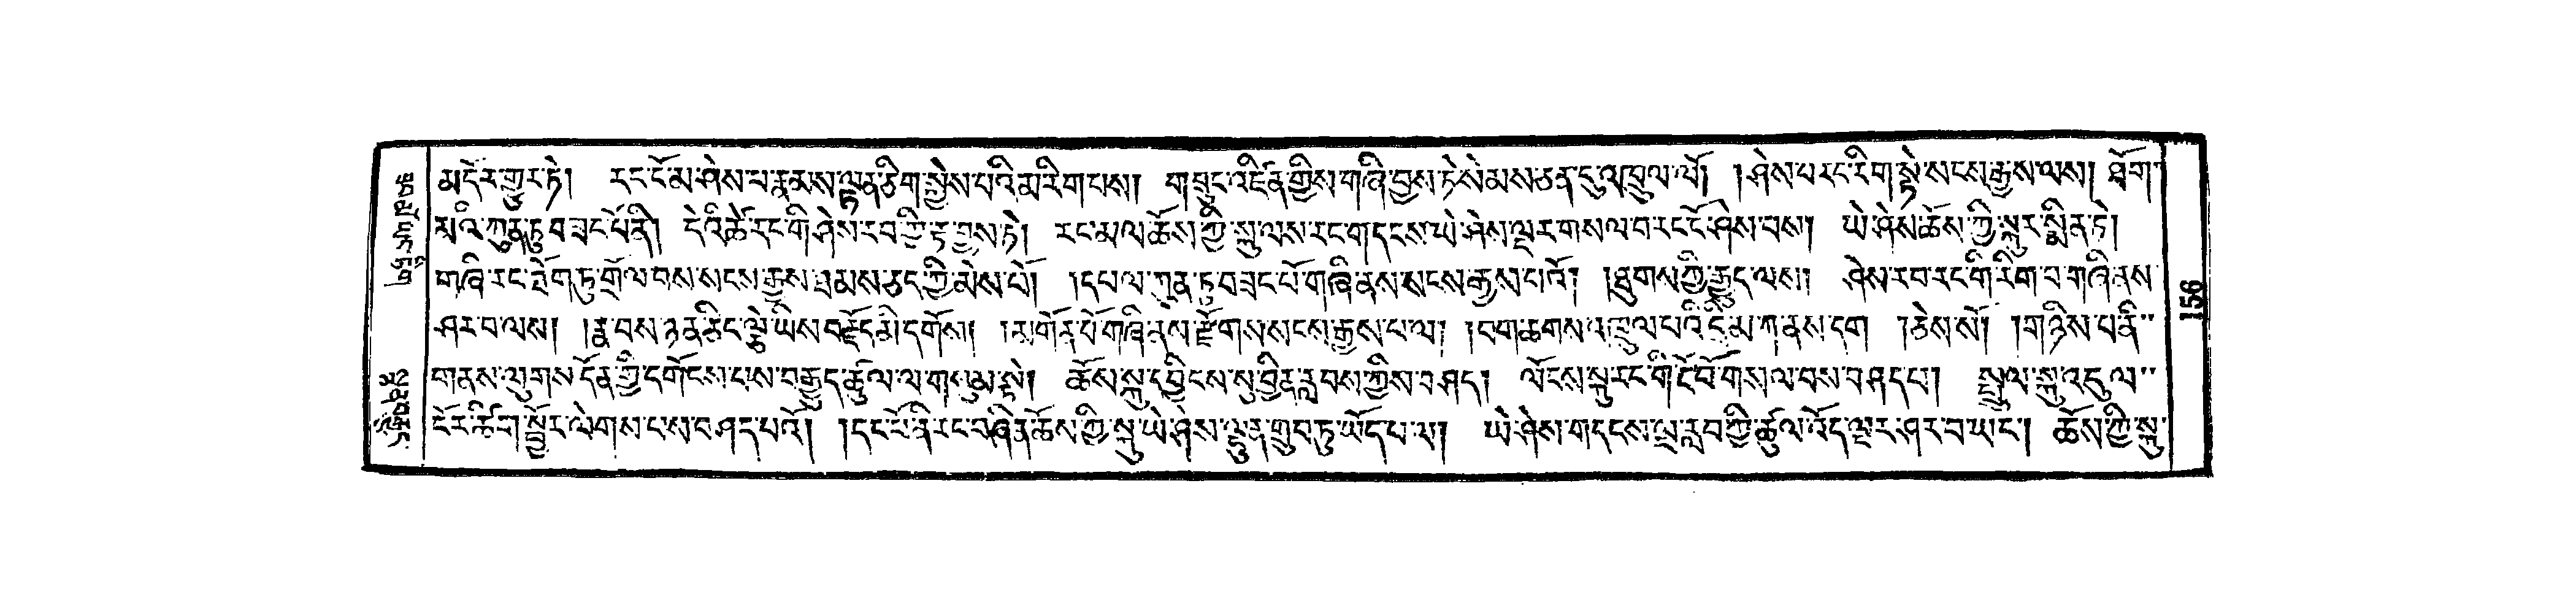 མདེར་གྱུར་ཏེ། རང་ངོ་མ་ཤེས་པ་རྣམས་ལྷན་ཅིག་སྐྱེས་པའི་མ་རིག་པས། གཟུང་འཛིན་གྱིས་གཞི་བྱས་ཏེ་སེམས་ཅན་དུ་འཁྲུལ་ལོ། །ཤེས་པ་རང་རིག་སྟེ་སངས་རྒྱས་ལས། ཐོག་
མའི་ཀུན་ཏུ་བཟང་པོ་ནི། དེའི་ཚེ་རང་གི་ཤེས་རབ་ཀྱི་རྩ་བྱས་ཏེ། རང་མལ་ཆོས་ཀྱི་སྐུ་ལས་རང་གདངས་ཡེ་ཤེས་ལྔར་གསལ་བ་རང་ངོ་ཤེས་བས། ཡེ་ཤེས་ཆོས་ཀྱི་སྐུར་སྨིན་ཏེ།
གཞི་རང་ཐོག་ཏུ་གྲོལ་བས་སངས་རྒྱས་ཐམས་ཅད་ཀྱི་མེས་པོ། །དཔལ་ཀུན་ཏུ་བཟང་པོ་གཞི་ནས་སངས་རྒྱས་པའོ། །ཐུགས་ཀྱི་རྒྱུད་ལས། ཤེས་རབ་རང་གི་རིག་པ་གཞི་ནས་
ཤར་བ་ལས། །རྣ་བས་ཉན་ཅིང་ལྕེ་ཡིས་བརྗོད་མི་དགོས། །མགོན་པོ་གཞི་ནས་རྫོགས་སངས་རྒྱས་པ་ལ། །བག་ཆགས་འཁྲུལ་པའི་དྲི་མ་ཀ་ནས་དག །ཅེས་སོ། །གཉིས་པ་ནི་
གནས་ལུགས་དོན་གྱི་དགོངས་པས་བརྒྱུད་ཚུལ་ལ་གསུམ་སྟེ། ཆོས་སྐུ་དབྱིངས་སུ་བྱིན་རླབས་ཀྱིས་བཤད། ལོངས་སྐུ་རང་གི་ངོ་བོ་གསལ་བས་བཤད་པ། སྤྲུལ་སྐུ་འདུལ་
ངོར་ཚིག་སྦྱོར་ལེགས་པས་བཤད་པའོ། །དང་པོ་ནི་རང་བཞིན་ཆོས་ཀྱི་སྐུ་ཡེ་ཤེས་ལྷུན་གྲུབ་ཏུ་ཡོད་པ་ལ། ཡེ་ཤེས་གདངས་ཕྲ་རླབ་ཀྱི་ཚུལ་འོད་ལྔར་ཤར་བ་ཡང་། ཆོས་ཀྱི་སྐུ་